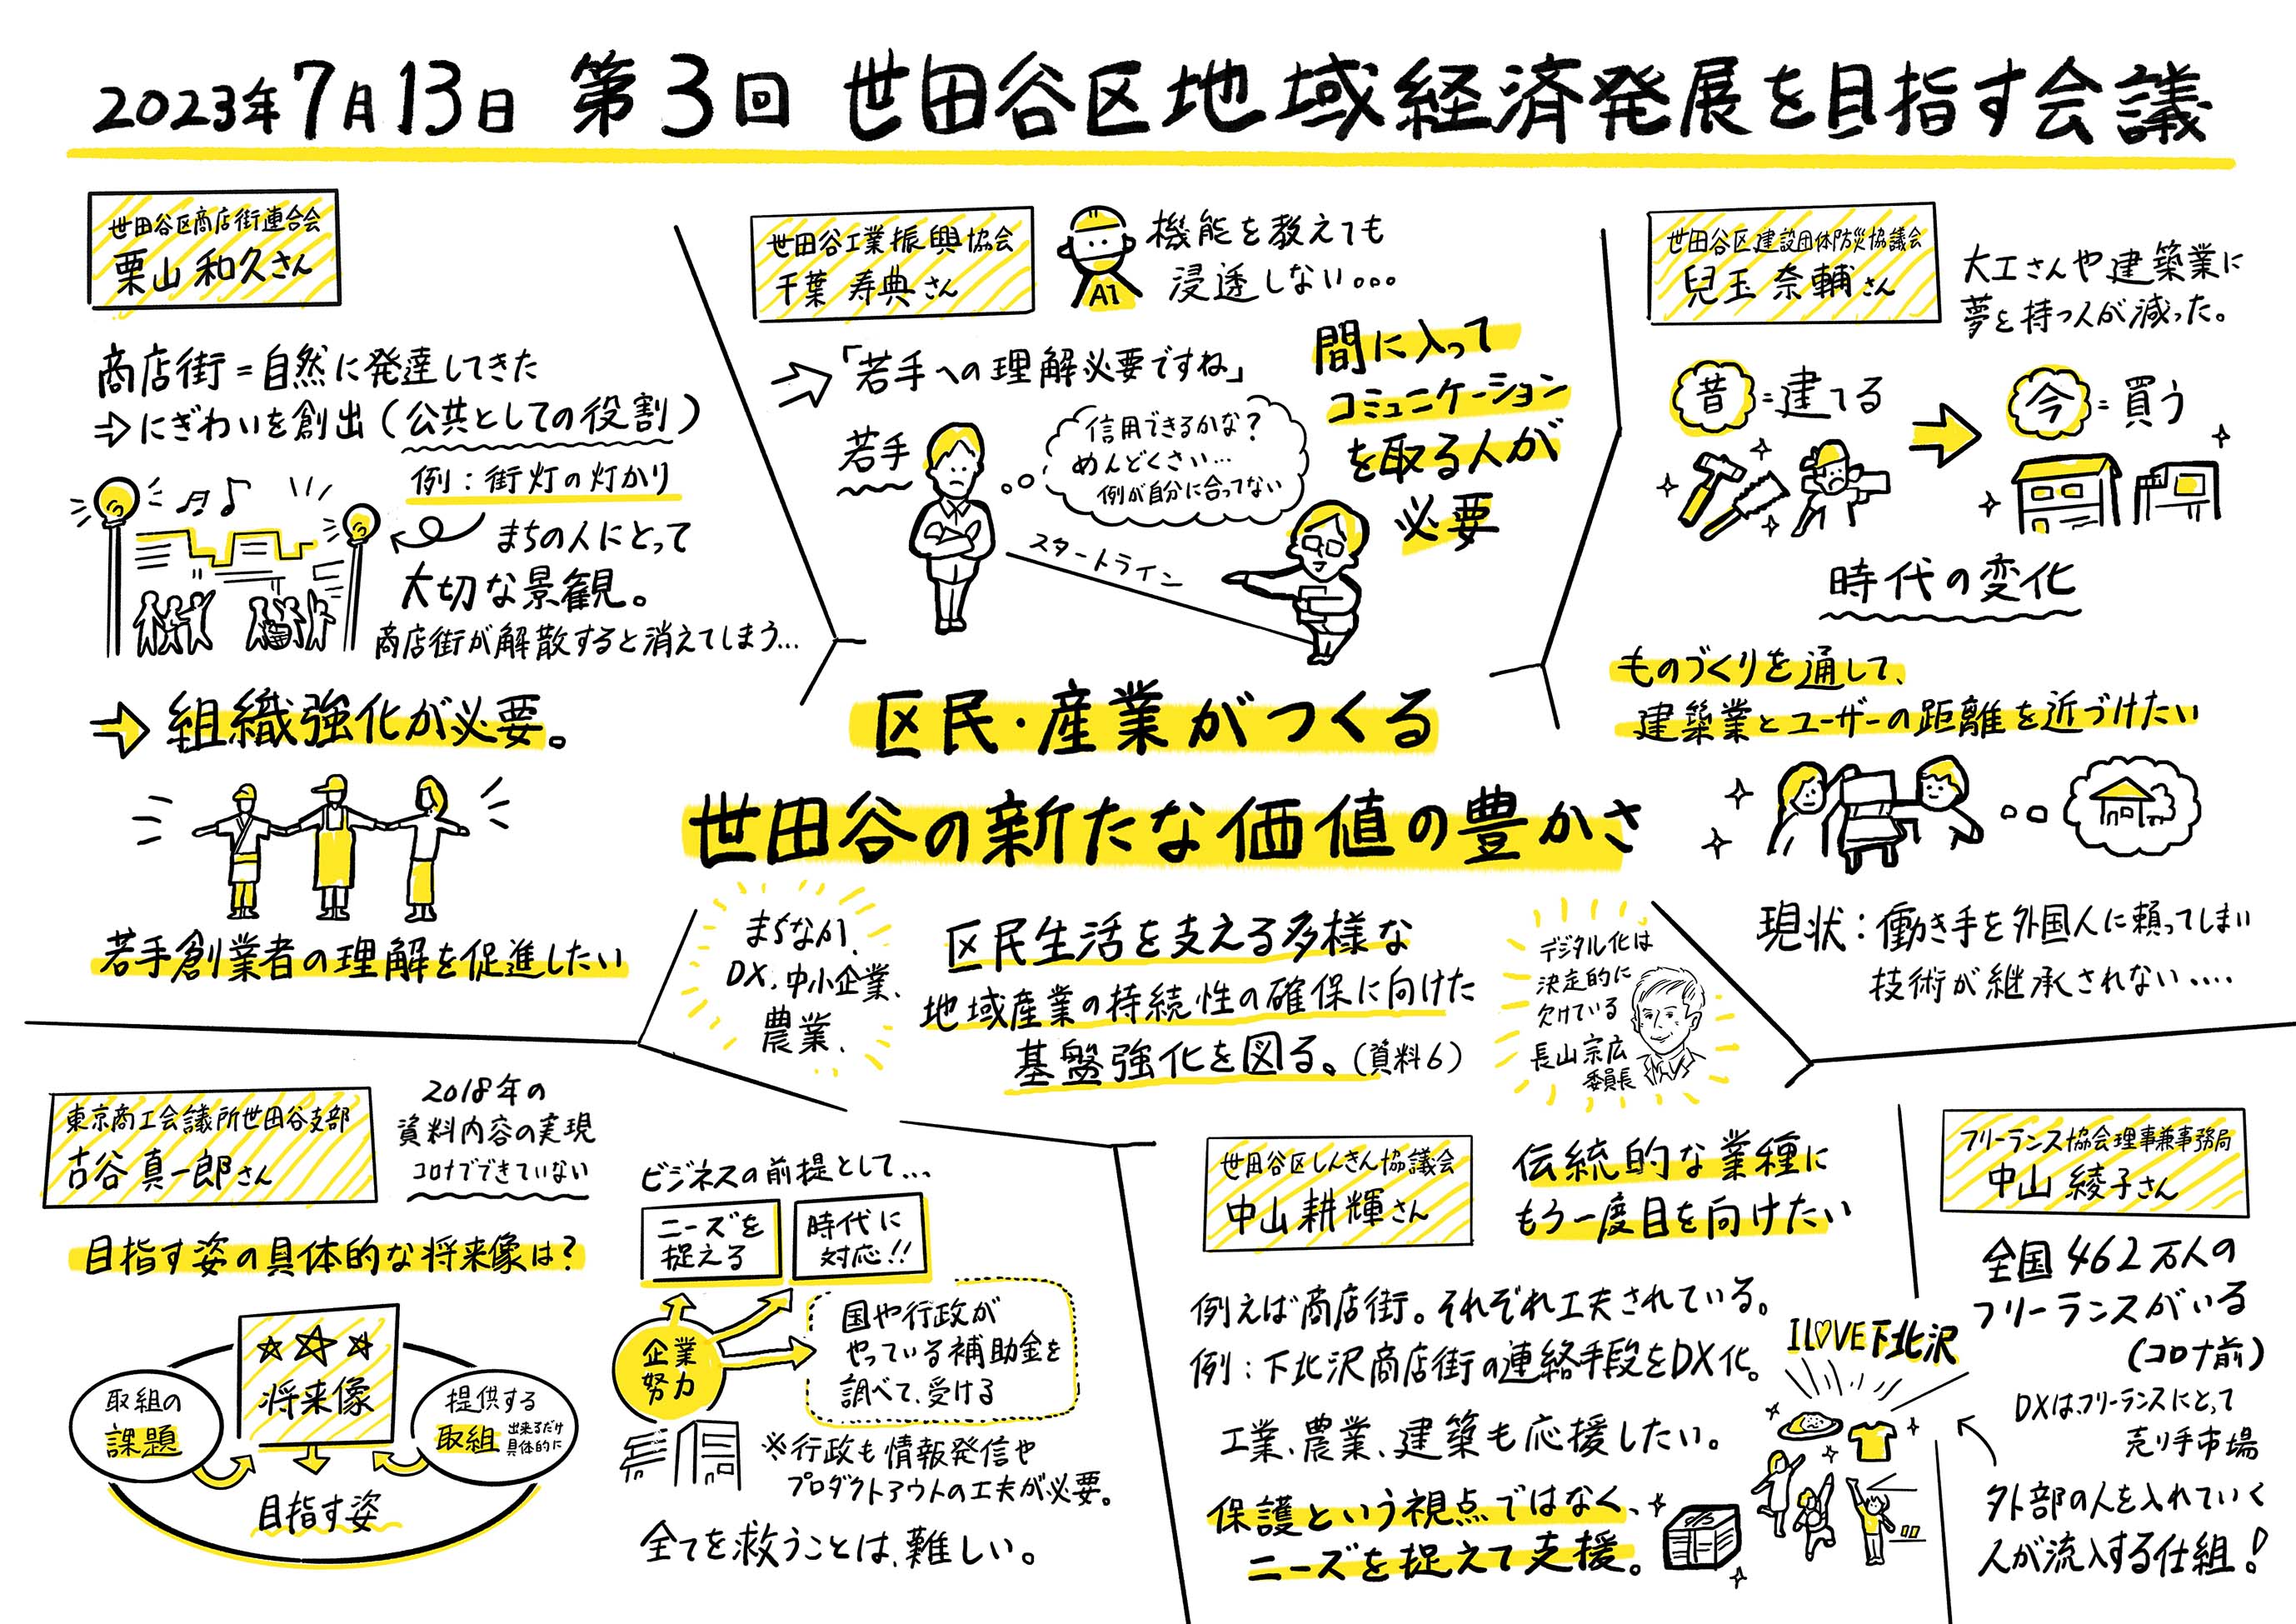 2023年7月13日 第3回 世田谷区地域経済発展を目指す会議
世田谷区商店街連合会
栗山 和久さん
商店街=自然に発達してきた
⇒にぎわいを創出(公共としての役割)
例:街灯の灯かり
まちの人にとって
大切な景観。
商店街が解散すると消えてしまう...
⇒組織強化が必要。
若手創業者の理解を促進したい
世田谷工業振興協会
千葉 寿典さん
AI
機能を教えても
浸透しない...
⇒「若手への理解必要ですね」
若手
信用できるかな?
めんどくさい...
例が自分に合ってない
スタートライン
間に入って
コミュニケーション
を取る人が
必要
世田谷区建設団体防災協議会
兒玉 奈輔さん
大工さんや建築業に
夢を持つ人が減った。
昔=建てる
今=買う
時代の変化
ものづくりを通して、
建築業とユーザーの距離を近づけたい
現状:働き手を外国人に頼ってしまい
技術が継承されない....
区民・産業がつくる
世田谷の新たな価値の豊かさ
まちなか、
DX、中小企業、
農業、
区民生活を支える多様な
地域産業の持続性の確保に向けた
基盤強化を図る。(資料6)
デジタル化は
決定的に
欠けている
長山宗広
委員長
東京商工会議所世田谷支部
古谷 真一郎さん
2018年の
資料内容の実現
コロナでできていない
目指す姿の具体的な将来像は?
将来像
取組の
課題
提供する
取組 出来るだけ
具体的に
目指す姿
ビジネスの前提として...
ニーズを
捉える
時代に
対応!!
企業
努力
国や行政が
やっている補助金を
調べて、受ける
※行政も情報発信や
プロダクトアウトの工夫が必要。
全てを救うことは、難しい。
世田谷区しんきん協議会
中山 耕輝さん
伝統的な業種に
もう一度目を向けたい
例えば商店街。それぞれ工夫されている。
例:下北沢商店街の連絡手段をDX化。
I LOVE下北沢
工業、農業、建築も応援したい。
保護という視点ではなく、
ニーズを捉えて支援。
フリーランス協会理事兼事務局
中山 綾子さん
全国462万人の
フリーランスがいる
(コロナ前)
DXはフリーランスにとって
売り手市場
外部の人を入れていく
人が流入する仕組!